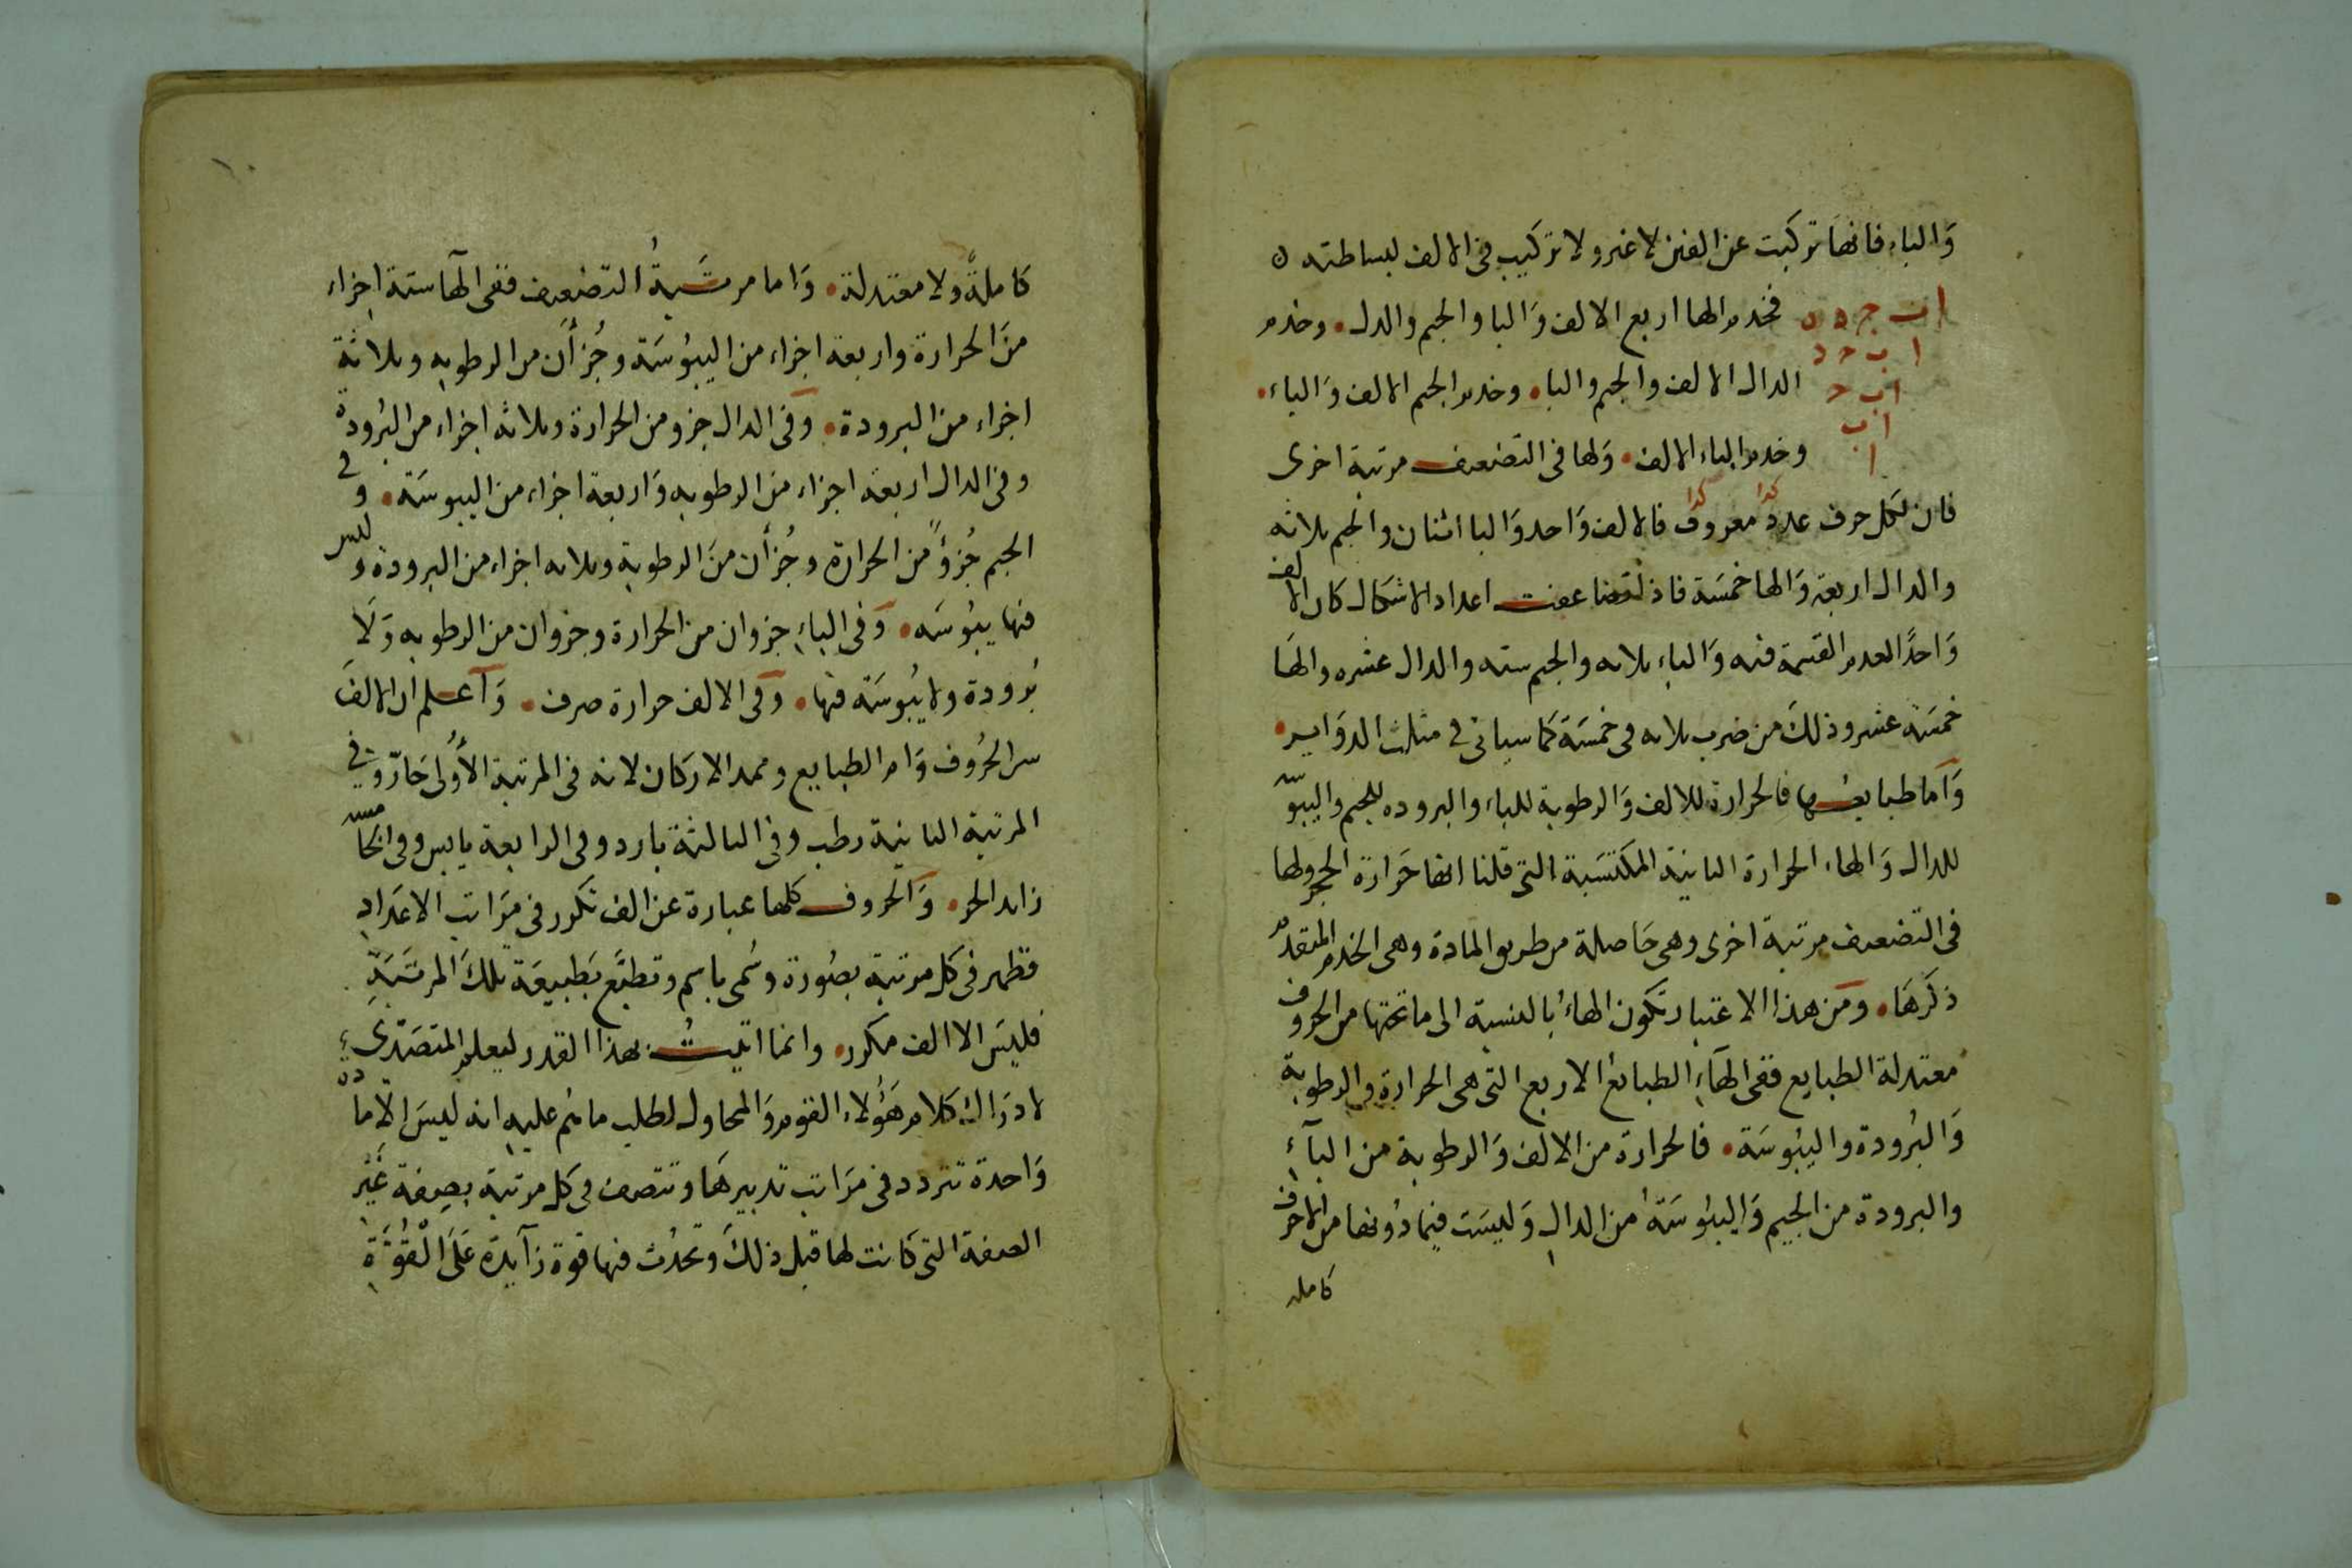 وَالباء فانهَا تركبت عن الفين لا غير ولا تركيب فى الالف لبساطته ه
ا ب ج د ه فخدم الها اربع الالف وَالبا والجيم والدل • وخدم
ا ب ج د
الدال الالف والجيم والبا • وخدم الجيم الالف وَالباء •
ا ب ج
ا ب
وخدم الباء الالف • وَلها فى التضعيف مرتبة اخرى
ا
كذا كذا
فان لكل حرف عدد معروف فالالف وَاحد وَالبا اثنان والجيم ثلاثه
والدال اربعة وَالها خمسَة فاذا تضاعفت اعداد الاشكال كان الالف
وَاحدًا لعدم القسمة فيه وَالباء ثلاثه والجيم سته والدال عشره والهَا
خمسَة عشر وذلكَ من ضرب ثلاثه فى خمسَة كَما سياتى فى مثلث الدوَاير •
وَآما طبايعها فالحرارة للالف وَالرطوبة للباء والبروده للجيم واليبوسه
للدال وَالهاء الحرارة الثانية المكتسَبة التى قلنا انها حَرارة الحجر ولها
فى التضعيف مرتبة اخرى وهى حَاصلة من طريق المادة وهى الخدم المتقدم
ذكرهَا • ومن هذا الاعتبار تكون الهاءُ بالنسبة الى ما تحتها من الحروف
معتدلة الطبايع ففى الهآءِ الطبائع الاربع التى هى الحرارة والرطوبة
وَالبُرودة واليبُوسَة • فالحرارة من الالف وَالرطوبة من البآءِ
والبرودة من الجيم وَاليبُوسَةُ من الدالِ وَليسَت فيما دُونها من الاحرف
كامله
١٠
كاملةً ولا معتدلة • وَاما مرتَبةُ التضعيف ففى الهآ ستة اجزاء
منَ الحرارة واربعة اجزاء من اليبُوسَة وجُزأَن من الرطوبه وثلاثة
اجزاء من البرودة • وَفى الدال جزو من الحرارة وثلاثه اجزاء من البُرودة
وفى الدال اربعة اجزاء من الرطوبه وَاربعة اجزاء من اليبوسَة • وفى
الجيم جُزوًا من الحرارة وجُزأن منَ الرطوبة وثلاثه اجزاء من البرودة وليس
فيها يبُوسَه • وَفى الباءِ جزوان من الحرارة وجزوان من الرطوبه وَلَا
بُرودة ولا يبُوسَة فيها • وَفى الالف حرارة صرف • وَآعلم ان الالفَ
سر الحُروف وَام الطبايع وممد الاركان لانه فى المرتبة الأُولى حَارّ وفى
المرتبة الثانية رطب وفى الثالثة بارد وفى الرابعة يابس وفى الخامسه
زايد الحر • وَالحروف كلها عبارة عن الف تكرر فى مرَاتب الاعدَادِ
فظهر فى كل مرتبة بصُورة وسُمى باسم وتطبَّع بَطبيعَة تلكَ المرتَبَةِ
فليسَ الا الف مكرر • وانما اتيتُ بهذا القدر ليعلم المتصَدّىءِ
لادرَاك كلام هَؤُلاء القوم وَالمحاول لطلب ما هُم عليهِ انه ليسَ الّا مادة
وَاحدة تتردد فى مرَاتب تدبيرهَا وتتصف فى كل مرتبة بصِفة غَيْر
الصفة التى كانت لها قبل ذلكَ وتحدُث فيها قوة زآيدة عَلَى الْقُوَّةِ